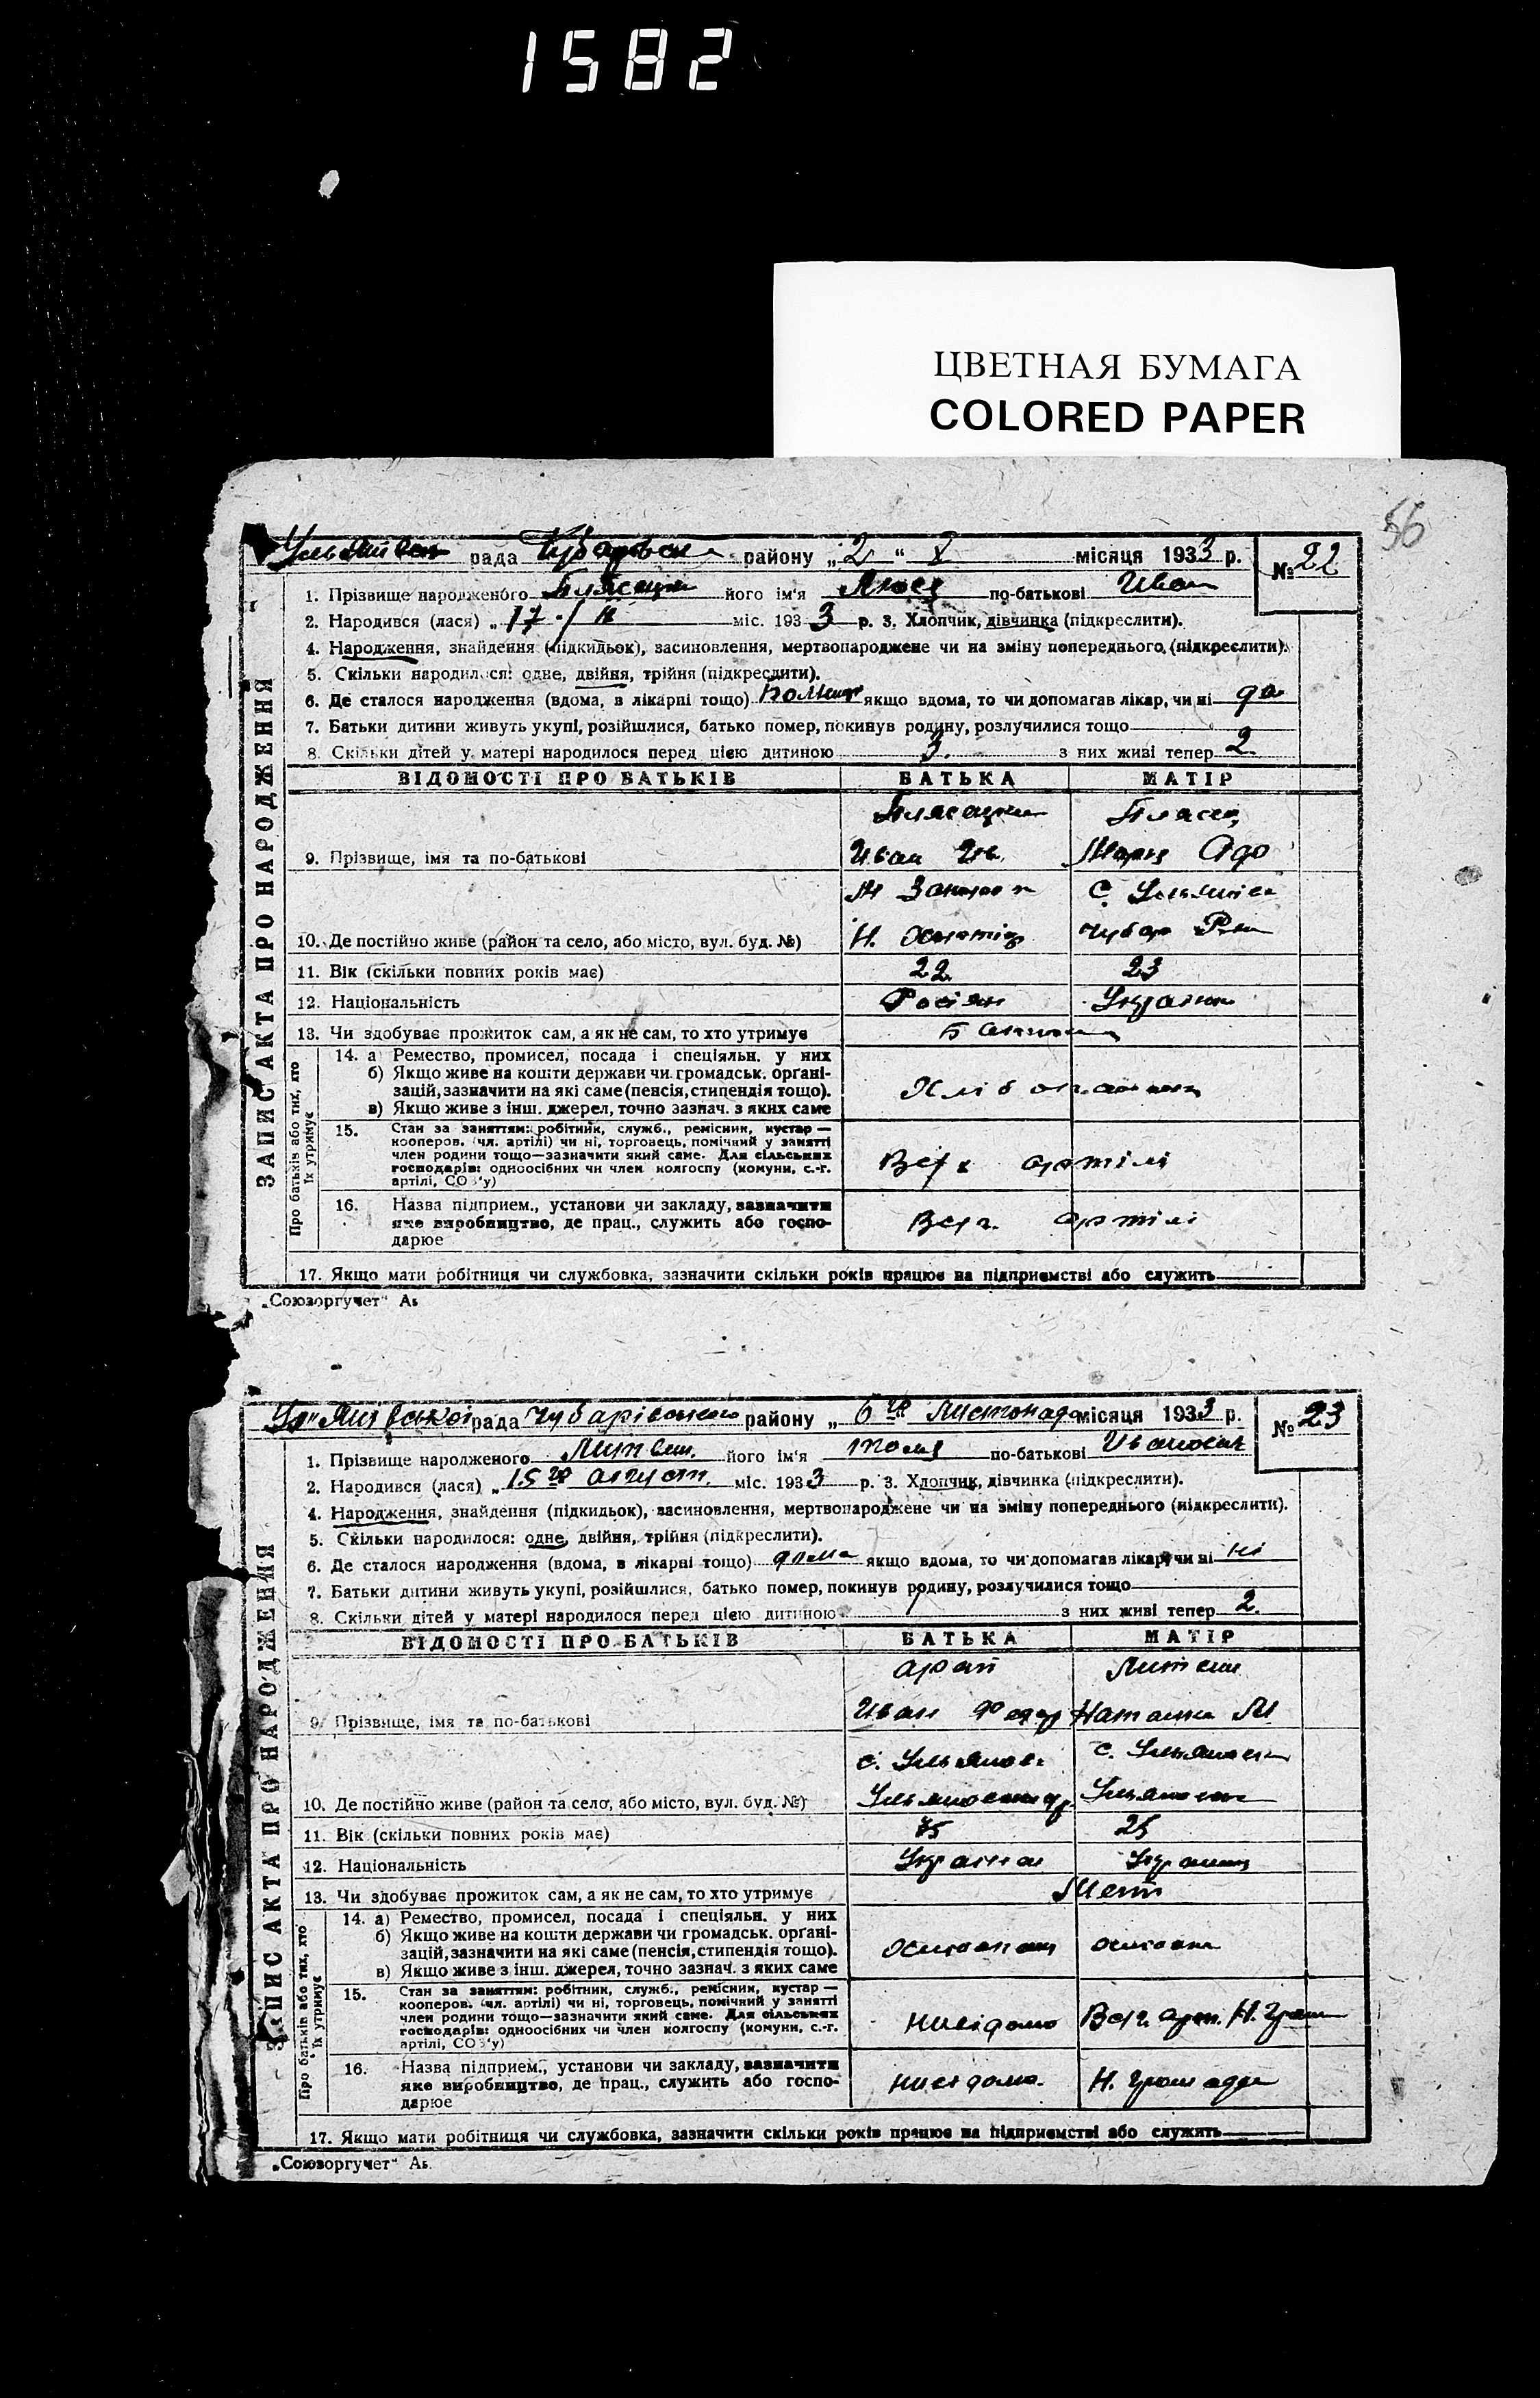 1582
ЦВЕТНАЯ БУМАГА
COLORED PAPER
56
рада району „2“ X місяця 1933 р. № 22
1. Прізвище народженого його ім'я Люся по-батькові Иван
2. Народився (лася) „17 / міс. 1933 р. 3. Хлопчик, дівчинка (підкреслити).
4. Народження, знайдення (підкидьок), засиновлення, мертвонароджене чи на зміну попереднього (підкреслити).
5. Скільки народилося: одне, двійня, трійня (підкреслити).
6. Де сталося народження (вдома, в лікарні тощо) якщо вдома, то чи допомагав лікар, чи ні да
7. Батьки дитини живуть укупі, розійшлися, батько помер, покинув родину, розлучилися тощо
8. Скільки дітей у матері народилося перед цією дитиною 3. з них живі тепер 2
ВІДОМОСТІ ПРО БАТЬКІВ БАТЬКА МАТІР
9. Прізвище, імя та по-батькові Иван Ив.
10. Де постійно живе (район та село, або місто, вул. буд. №)
11. Вік (скільки повних років має) 22 23
12. Національність Росіян Українк
13. Чи здобуває прожиток сам, а як не сам, то хто утримує
14. а) Ремество, промисел, посада і спеціяльн. у них
б) Якщо живе на кошти держави чи громадськ. органі-
зацій, зазначити на які саме (пенсія, стипендія тощо).
в) Якщо живе з інш. джерел, точно зазнач. з яких саме
15. Стан за заняттям: робітник, служб., ремісник, кустар —
кооперов. (чл. артілі) чи ні, торговець, помічний у занятті
член родини тощо—зазначити який саме. Для сільських
господарів: одноосібних чи член колгоспу (комуни, с.-г.
артілі, СОЗ'у) артілі
16. Назва підприєм., установи чи закладу, зазначити
яке виробництво, де прац., служить або госпо-
дарює артілі
17. Якщо мати робітниця чи службовка, зазначити скільки років працює на підприємстві або служить
ЗАПИС АКТА ПРО НАРОДЖЕННЯ
Про батьків або тих, хто їх утримує
„Союзоргучет“
рада Чубарівського району „6 го Листопада місяця 1933 р. № 23
1. Прізвище народженого Литвин. його ім'я Толя по-батькові Иванович
2. Народився (лася) „15 го август. міс. 1933 р. 3. Хлопчик, дівчинка (підкреслити).
4. Народження, знайдення (підкидьок), засиновлення, мертвонароджене чи на зміну попереднього (підкреслити).
5. Скільки народилося: одне, двійня, трійня (підкреслити).
6. Де сталося народження (вдома, в лікарні тощо) дома якщо вдома, то чи допомагав лікар, чи ні ні
7. Батьки дитини живуть укупі, розійшлися, батько помер, покинув родину, розлучилися тощо
8. Скільки дітей у матері народилося перед цією дитиною 1 з них живі тепер 2.
ВІДОМОСТІ ПРО БАТЬКІВ БАТЬКА МАТІР
Литвин
9. Прізвище, імя та по-батькові Иван Федор Наталка М
10. Де постійно живе (район та село, або місто, вул. буд. №)
11. Вік (скільки повних років має) 25
12. Національність
13. Чи здобуває прожиток сам, а як не сам, то хто утримує
14. а) Ремество, промисел, посада і спеціяльн. у них
б) Якщо живе на кошти держави чи громадськ. органі-
зацій, зазначити на які саме (пенсія, стипендія тощо).
в) Якщо живе з інш. джерел, точно зазнач. з яких саме
15. Стан за заняттям: робітник, служб., ремісник, кустар —
кооперов. (чл. артілі) чи ні, торговець, помічний у занятті
член родини тощо—зазначити який саме. Для сільських
господарів: одноосібних чи член колгоспу (комуни, с.-г.
артілі, СОЗ'у) невідомо
16. Назва підприєм., установи чи закладу, зазначити
яке виробництво, де прац., служить або госпо-
дарює невідомо.
17. Якщо мати робітниця чи службовка, зазначити скільки років працює на підприємстві або служить
ЗАПИС АКТА ПРО НАРОДЖЕННЯ
Про батьків або тих, хто їх утримує
„Союзоргучет“